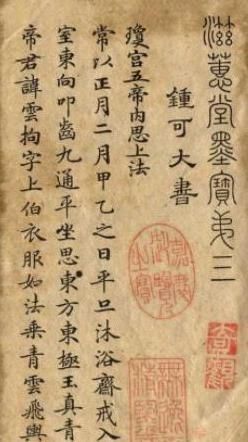 滋蕙堂墨寶弟三
鍾可大書
嘉慶御覽之寶
瓊宮五帝內思上法
常以正月二月甲乙之日平旦沐浴齋戒入
室東向叩齒九通平坐思東方東極玉真青
帝君諱雲拘字上伯衣服如法乘青雲飛輿